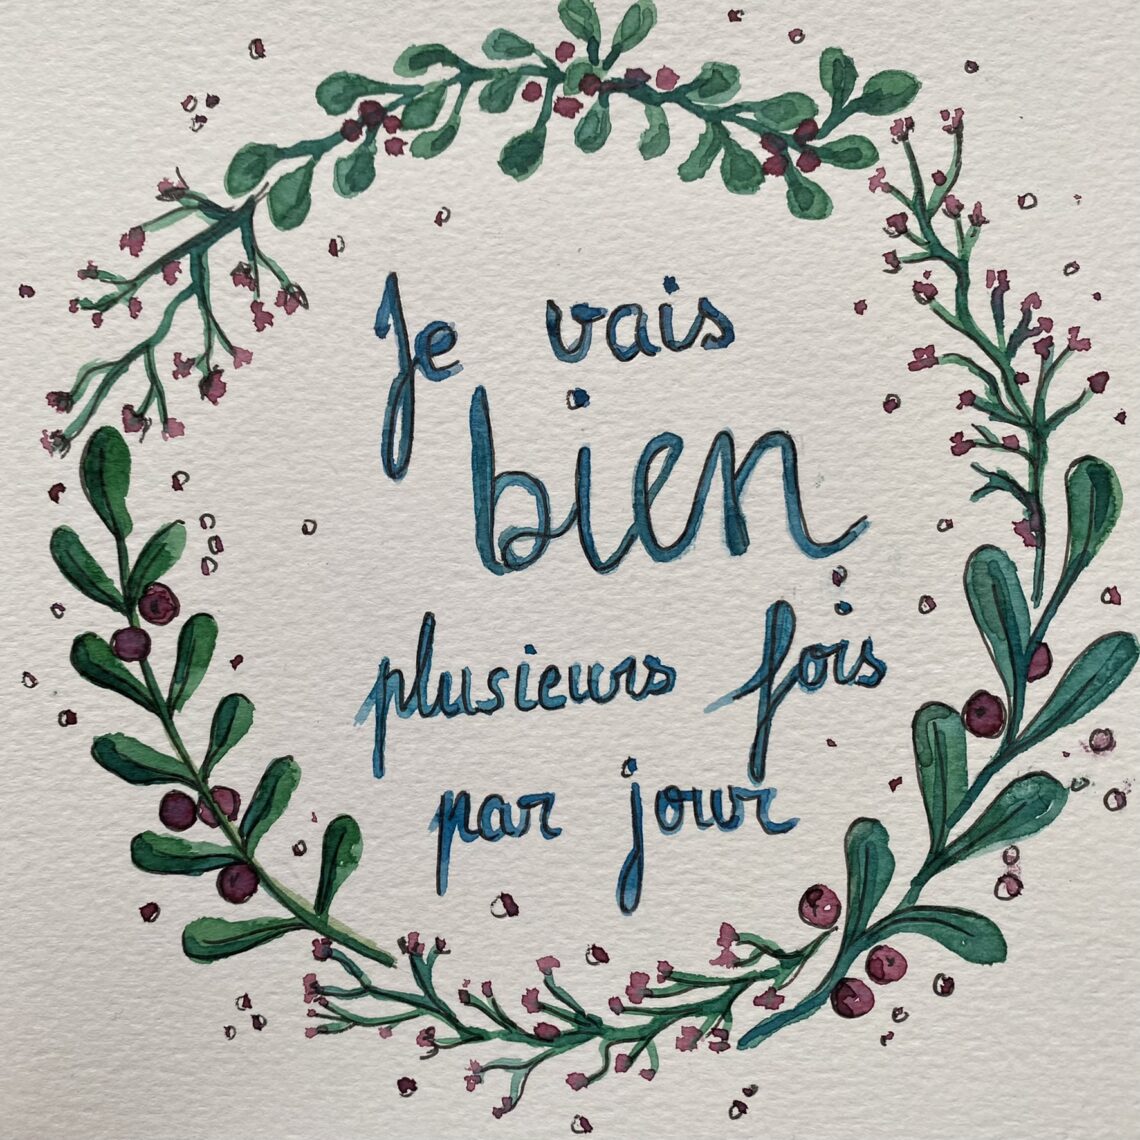 Je vais
bien
plusieurs fois
par jour